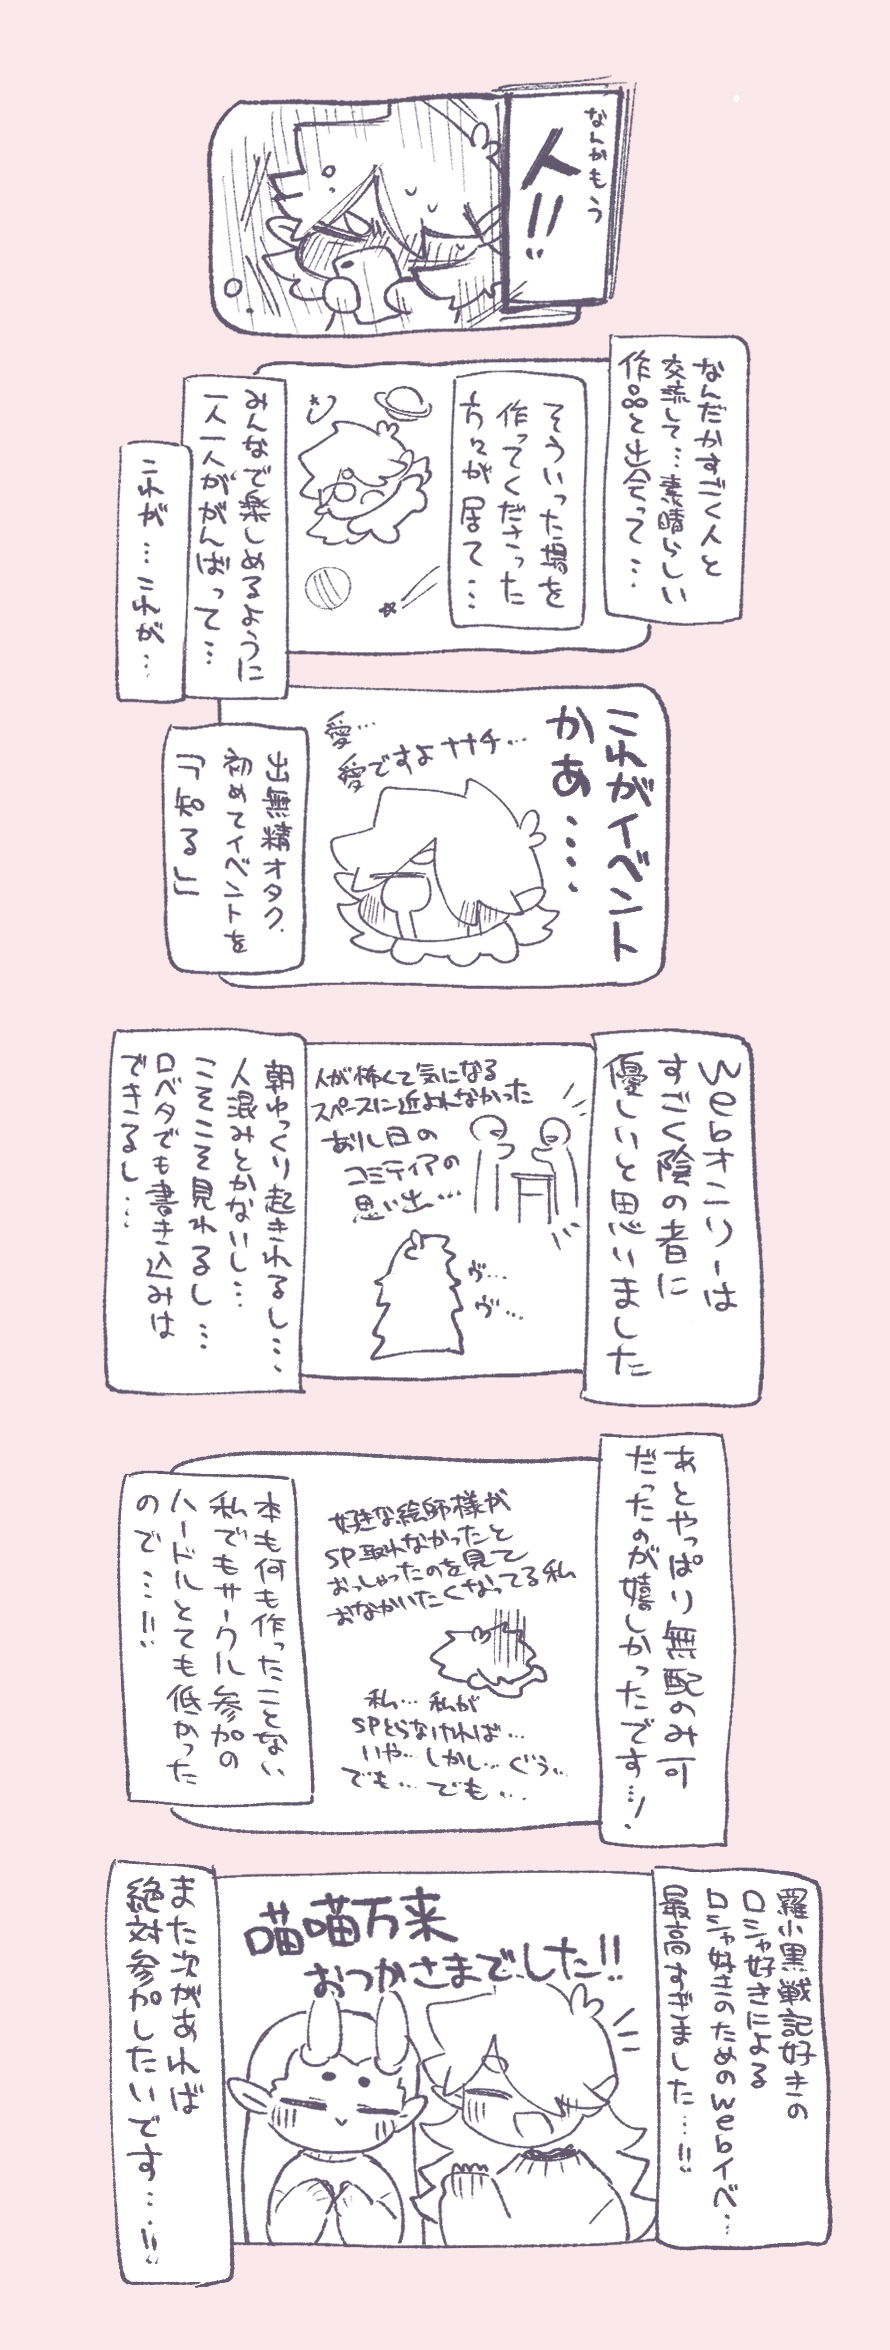 なんかもう
人!!
なんだかすごく人と
交流して…素晴らしい
作品と出会って…
そういった場を
作ってくださった
方々が居て…
みんなで楽しめるように
一人一人ががんばって…
これが…これが…
これがイベント
かぁ….
愛…
愛ですよナナチ…
出無精オタク、
初めてイベントを
「「知る」」
webオンリーは
すごく陰の者に
優しいと思いました
人が怖くて気になる
スペースに近よれなかった
ありし日の
コミティアの
思い出…
ヴ…
ヴ…
朝ゆっくり起きれるし…、
人混みとかないし…
こそこそ見れるし…
ロベタでも書き込みは
できるし…
あとやっぱり無配のみ可
だったのが嬉しかったです…!
好きな絵師様が
SP取れなかったと
おっしゃったのを見て
おなかいたくなってる私
私…私が
SPとらなければ…
いや…しかし…ぐぅ…
でも…でも…
本も何も作ったことない
私でもサークル参加の
ハードルとても低かった
ので…!!
羅小黒戦記好きの
ロシャ好きによる
ロシャ好きのためのwebイベ…
最高すぎました…!!
喵喵万来
おつかさまでした!!
また次があれば
絶対参加したいです…!!